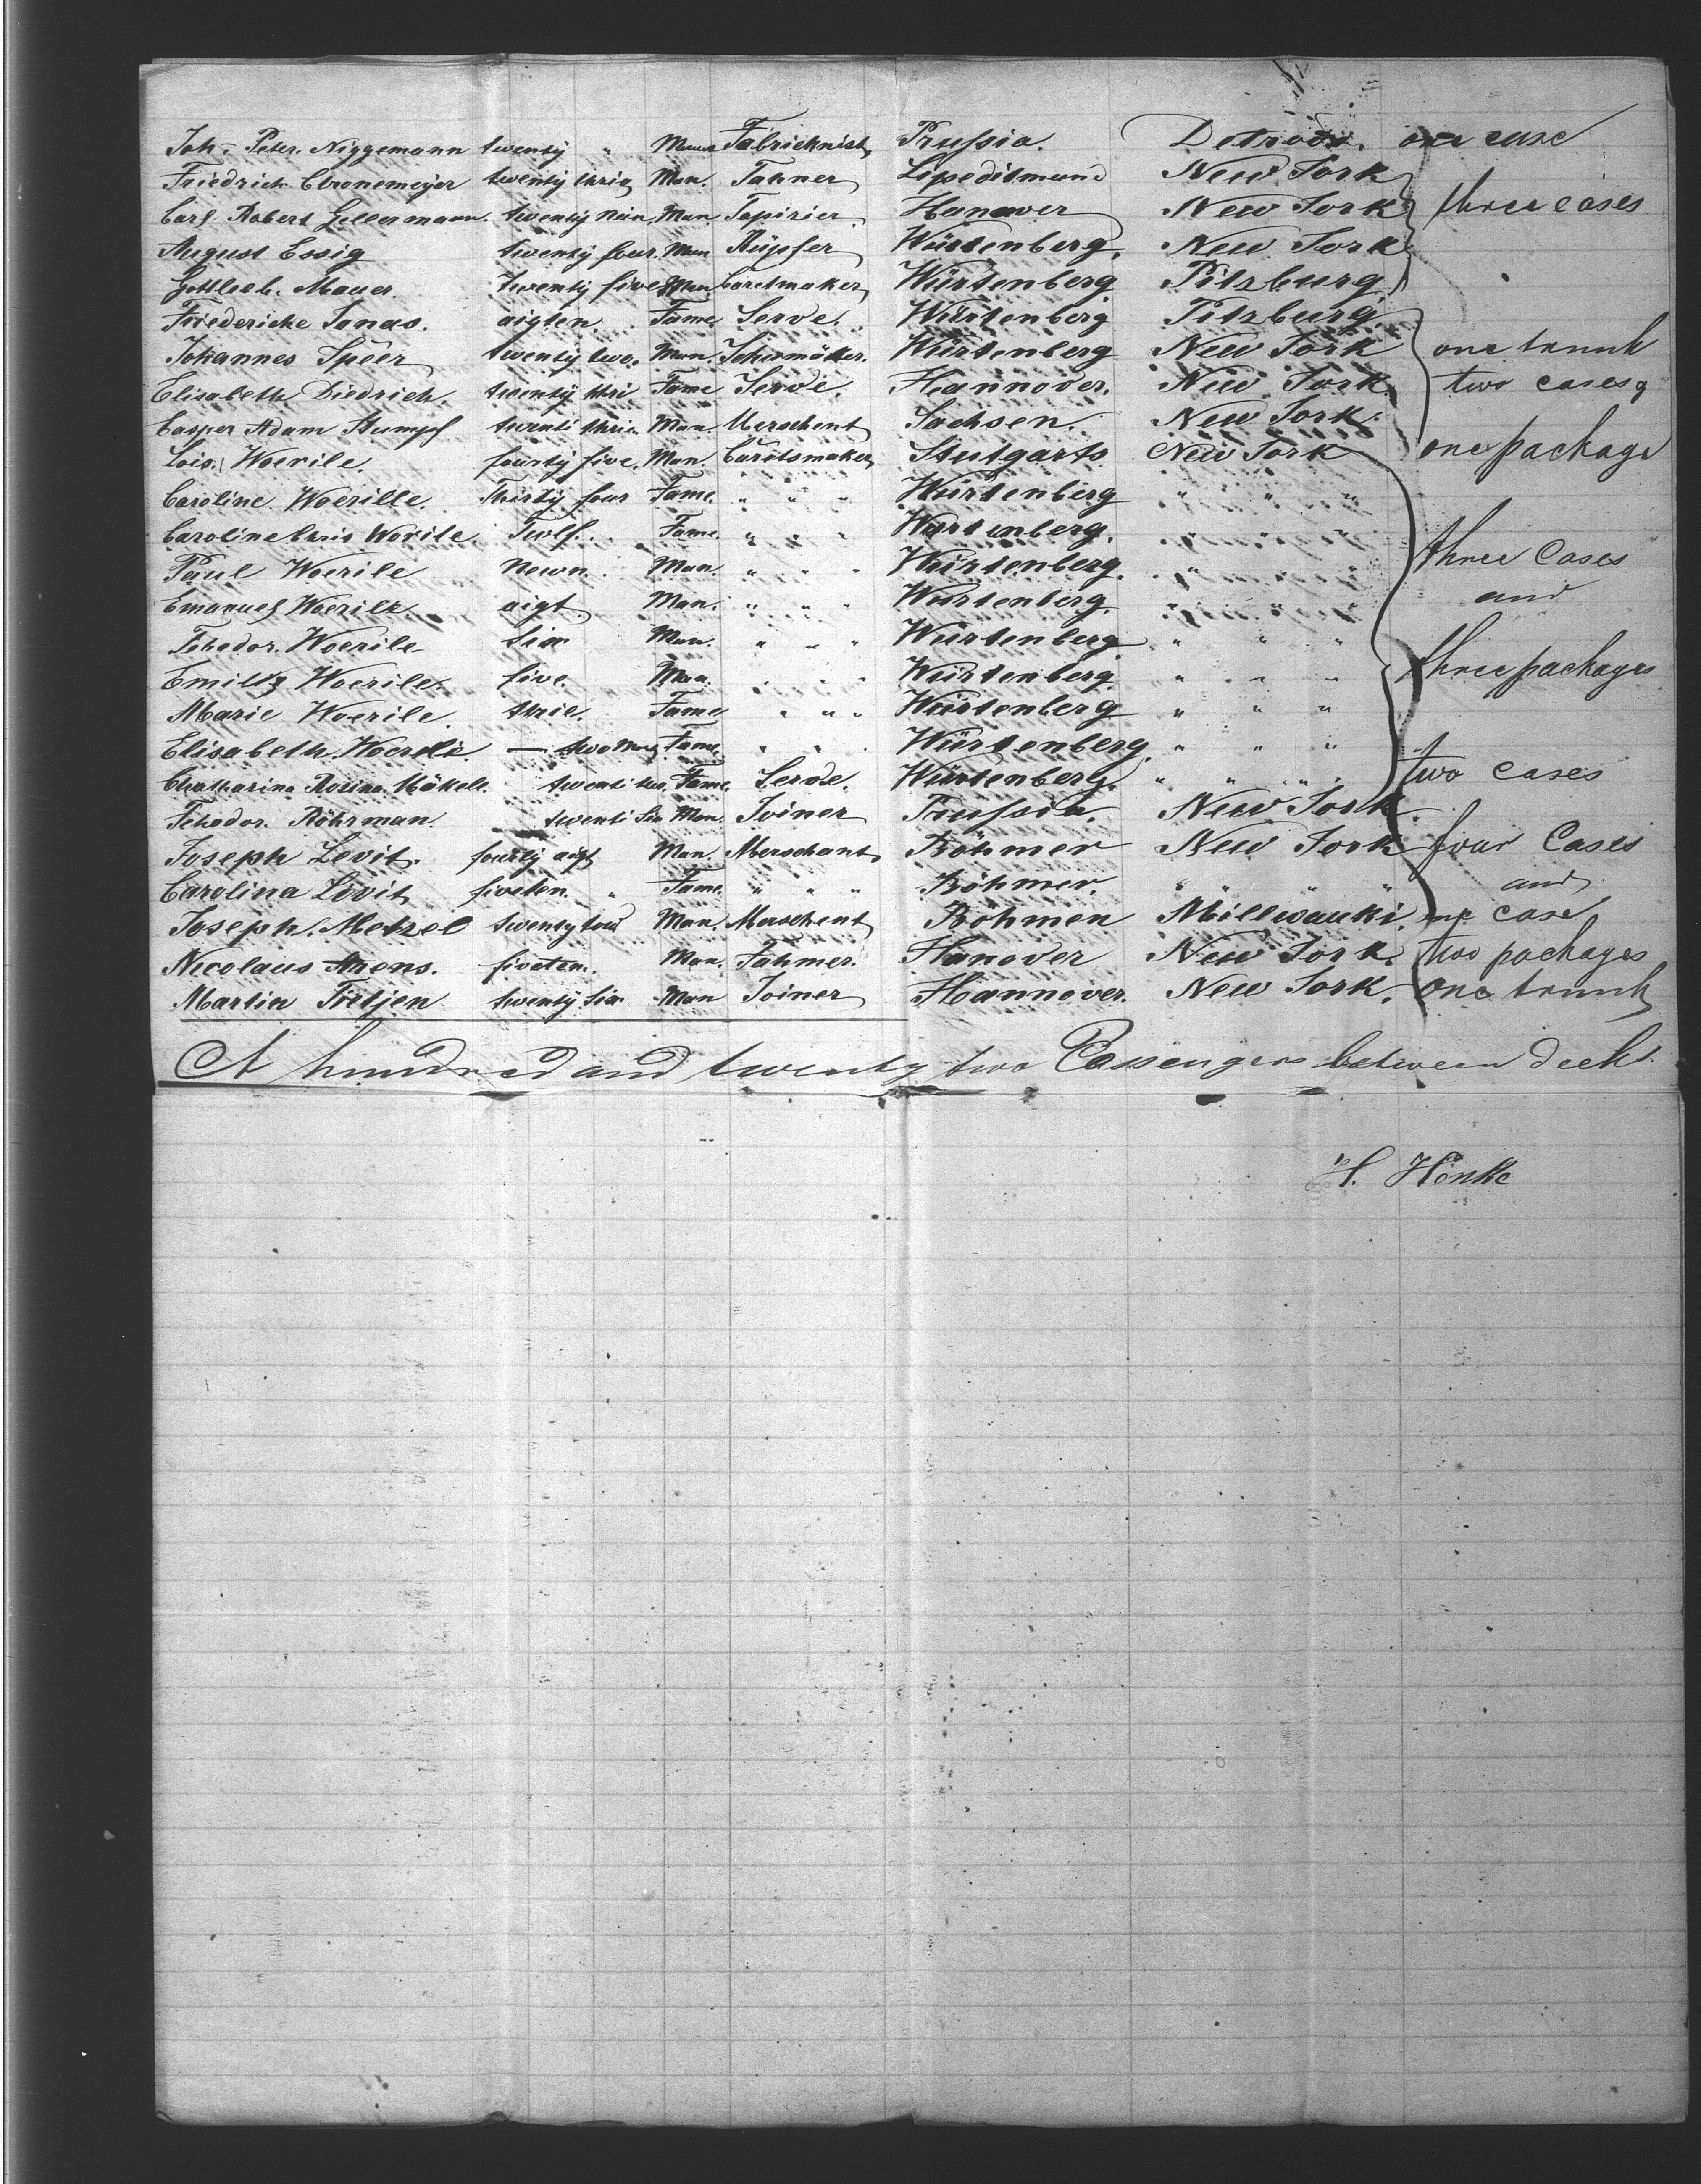 Joh. Peter. Niggemann twenty " Man Fabricknist, Prussia. Detroit. one case
Friedrich Cronemeyer twenty thrie Man. Tahner Lipeditmund New York
Carl Robert Gellermann. twenty nein Man Tapirier Hanover New York three cases
August Essig twenty four. Man Küpfer Würtenberg. New York
Gottlieb. Mauer twenty five Man Caretmaker Würtenberg Pitzburg
Friedericke Jonas. aigten. Fame Serve. Würtenberg Pitzburg
Johannes Speer twenty two. Man. Schumäcker. Würtenberg New York one trunk
Elisabeth Diedrich. twenty thri. Fame Serve. Hannover. New York two cases
Casper Adam Stumpf twenti thrie. Man. Merschent Sachsen. New York.
Lois. Woerile. fourty five. Man. Caretsmaker Stutgarts New York one package
Caroline. Woerille. Thirty four Fame. " " " Würtenberg " " "
Caroline Chris Worile. Twlf. Fame. " " " Wurtenberg. " " "
Paul Woerile Newn. Man. " " " Würtenberg. " " " three Cases
Emanuel Woerile aigt Man. " " " Wurtenberg. " " " and
Tehodor. Woerile six Man. " " " Würtenberg " " "
Emill Woerile. five. Man. " " " Würtenberg. " " " three packages
Marie Woerile. thrie. Fame " " " Würtenberg " " "
Elisabeth. Woerile. — two Fame. " " " Würtenberg " " "
Chatharina Rosina Mäkele. twenti two, Fame. Serve. Würtenberg. " " " two cases
Tehodor. Röhrman. twenti six Man. Joiner Prussia. New York.
Joseph Levit. fourty aigt Man. Merschant Böhmer New York four Cases
Carolina Levit fiveten. " Fame. " " " Böhmer. " " " " and
Joseph. Metzel twenty tow Man. Merschent Böhmen Millwauki. one case
Nicolaus Arens. fiveten. Man. Fahmer. Hanover New York. two packages
Martin Tietjen twenty six Man Joiner Hannover. New York. one trunk
A hundred and twenty two Passengers between deck.
H. Hönke